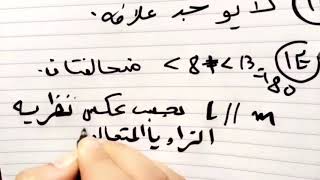 لا يوجد علاقة.
1E) <8 + <B = 180 متحالفتان.
l // m بحسب عكس نظرية
الزاويا المتحالف